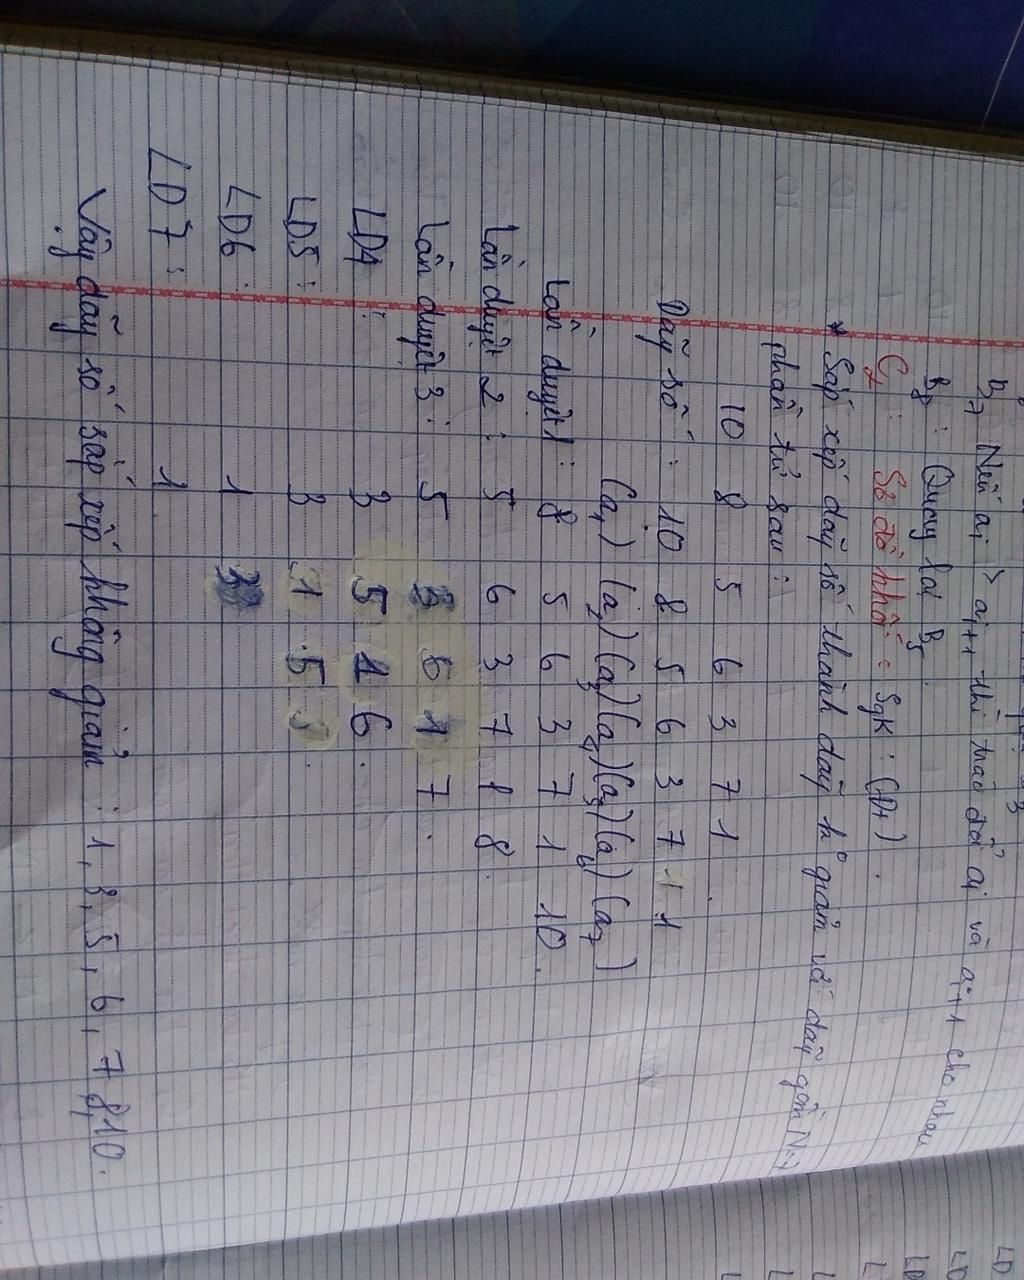 B7 Nếu ai > ai+1 thì tráo đổi ai và ai+1 cho nhau
B8 : Quay lại B5
C, : Sơ đồ khối : SgK : (D+) .
* Sắp xếp dãy số thành dãy k° giảm với dãy gồm N=7
phần tử sau :
10 8 5 6 3 7 1
Dãy số : 10 8 5 6 3 7 1
(a1) (a2) (a3) (a4) (a5) (a6) (a7)
Lần duyệt 1 : 8 5 6 3 7 1 10.
Lần duyệt 2 : 5 6 3 7 1 8.
Lần duyệt 3 : 5 3 6 1 7.
LD4 : 3 5 1 6.
LD5 : 3 1 5
LD6 : 1 3
LD7 : 1
Vậy dãy số sắp xếp không giảm : 1, 3, 5, 6, 7, 8, 10.